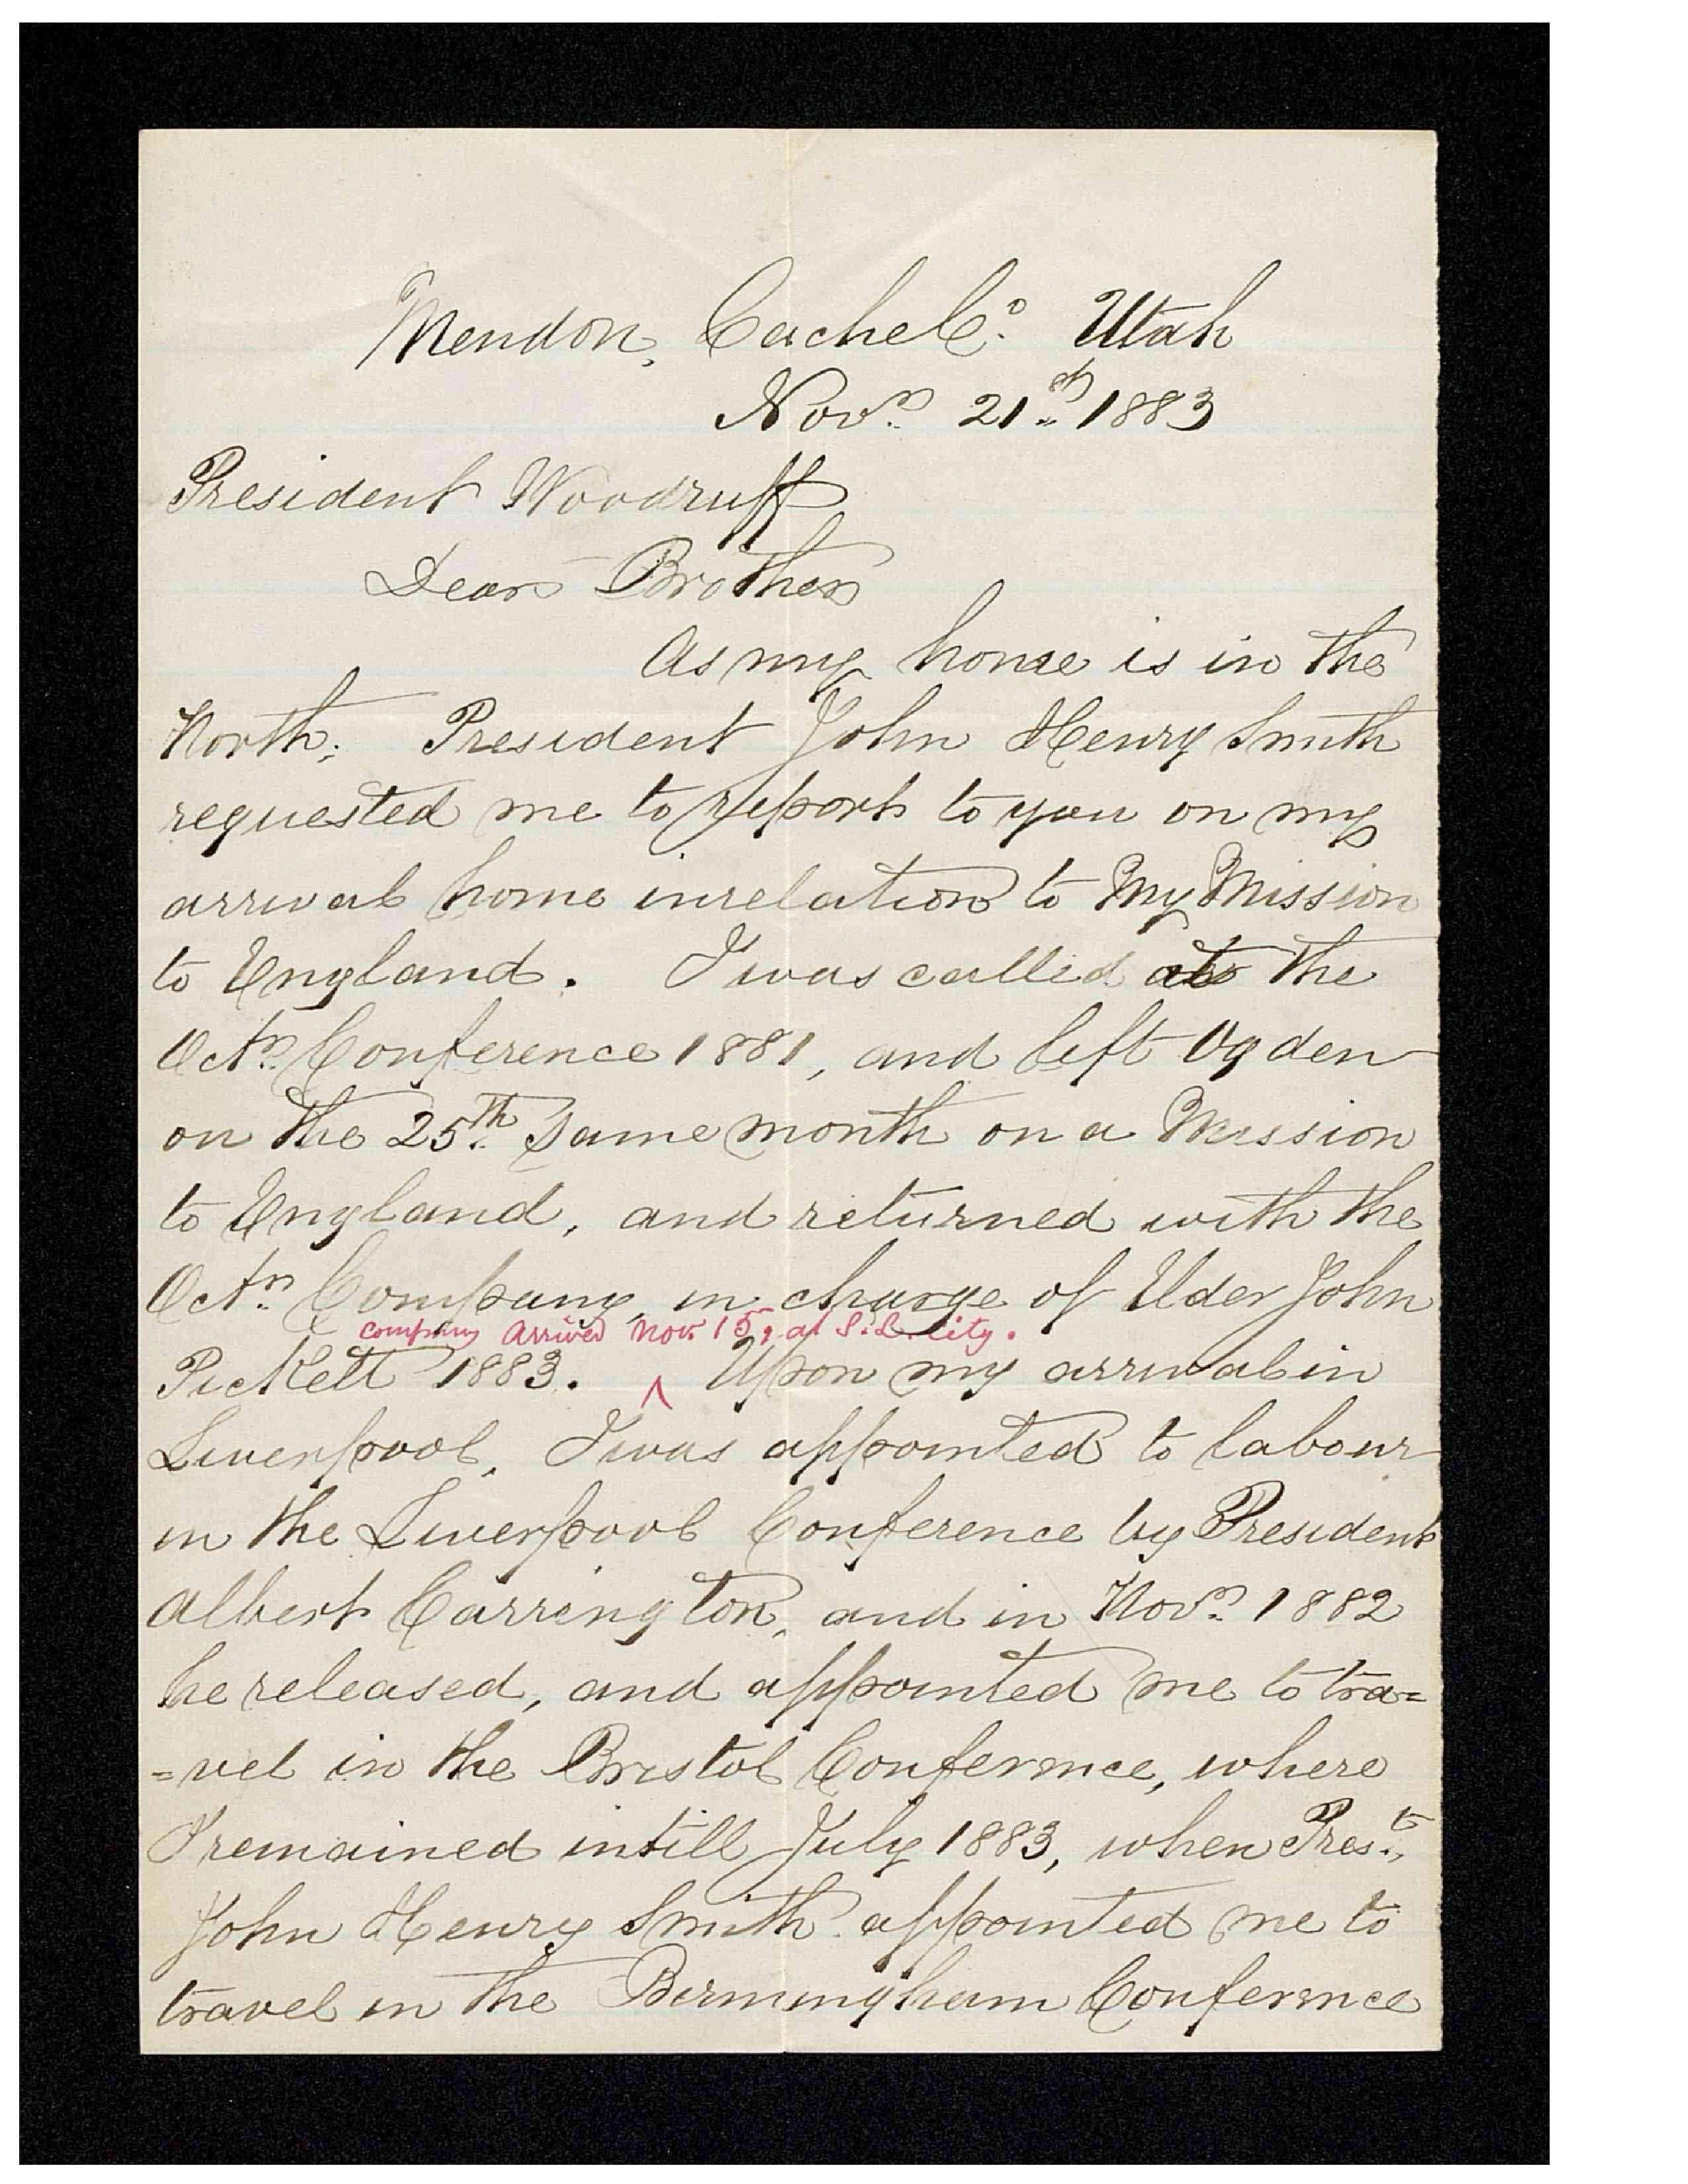 Mendon, Cache Co. Utah
Novr. 21st. 1883
President Woodruff
Dear Brother
As my home is in the
North, President John Henry Smith
requested me to report to you on my
arrival home in relation to My Mission
to England. I was called at the
Octr. Conference 1881, and left Ogden
on the 25th. Same month on a Mission
to England, and returned with the
Octr. Company, in charge of Elder John
company Arrived Nov. 15, at S. L. City.
Pickett 1883. ^ Upon my arrival in
Liverpool, I was appointed to labour
in the Liverpool Conference by President
Albert Carrington, and in Novr. 1882
he released, and appointed me to tra=
=vel in the Bristol Conference, where
I remained intill July 1883, when Prest.,
John Henry Smith appointed me to
travel in the Birmingham Conference